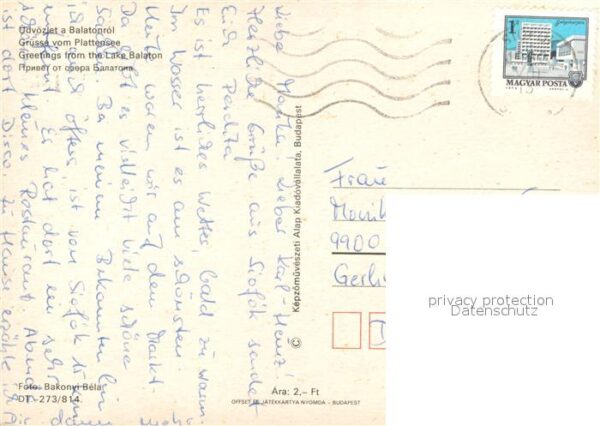 Üdvözlet a Balatonról
Grüsse vom Plattensee
Greetings from the Lake Balaton
Привет от озера Балатона
Liebe Monika! Lieber Karl-Heinz!
Herzliche Grüße aus Siofok sendet
Euch
Es ist herrliches Wetter, bald zu warm.
Im Wasser ist es am schönsten.
Heute waren wir auf dem Markt
Da gibt es vielleicht viele schöne
Sachen. Bei meinem Bekannten bin
ich öfters, ist von Siofok
Er hat dort ein sehr
schönes kleines Restaurant. Abends
ist dort Disco. Zu Hause erzähle ich
Dir dann mehr
Képzőművészeti Alap Kiadóvállalata, Budapest
1 Ft
MAGYAR POSTA
Frau
Monik
9900
Gerli
privacy protection
Datenschutz
Foto: Bakonyi Béla
DT - 273/814
Ára: 2,– Ft
OFFSET ÉS JÁTÉKKÁRTYA NYOMDA - BUDAPEST